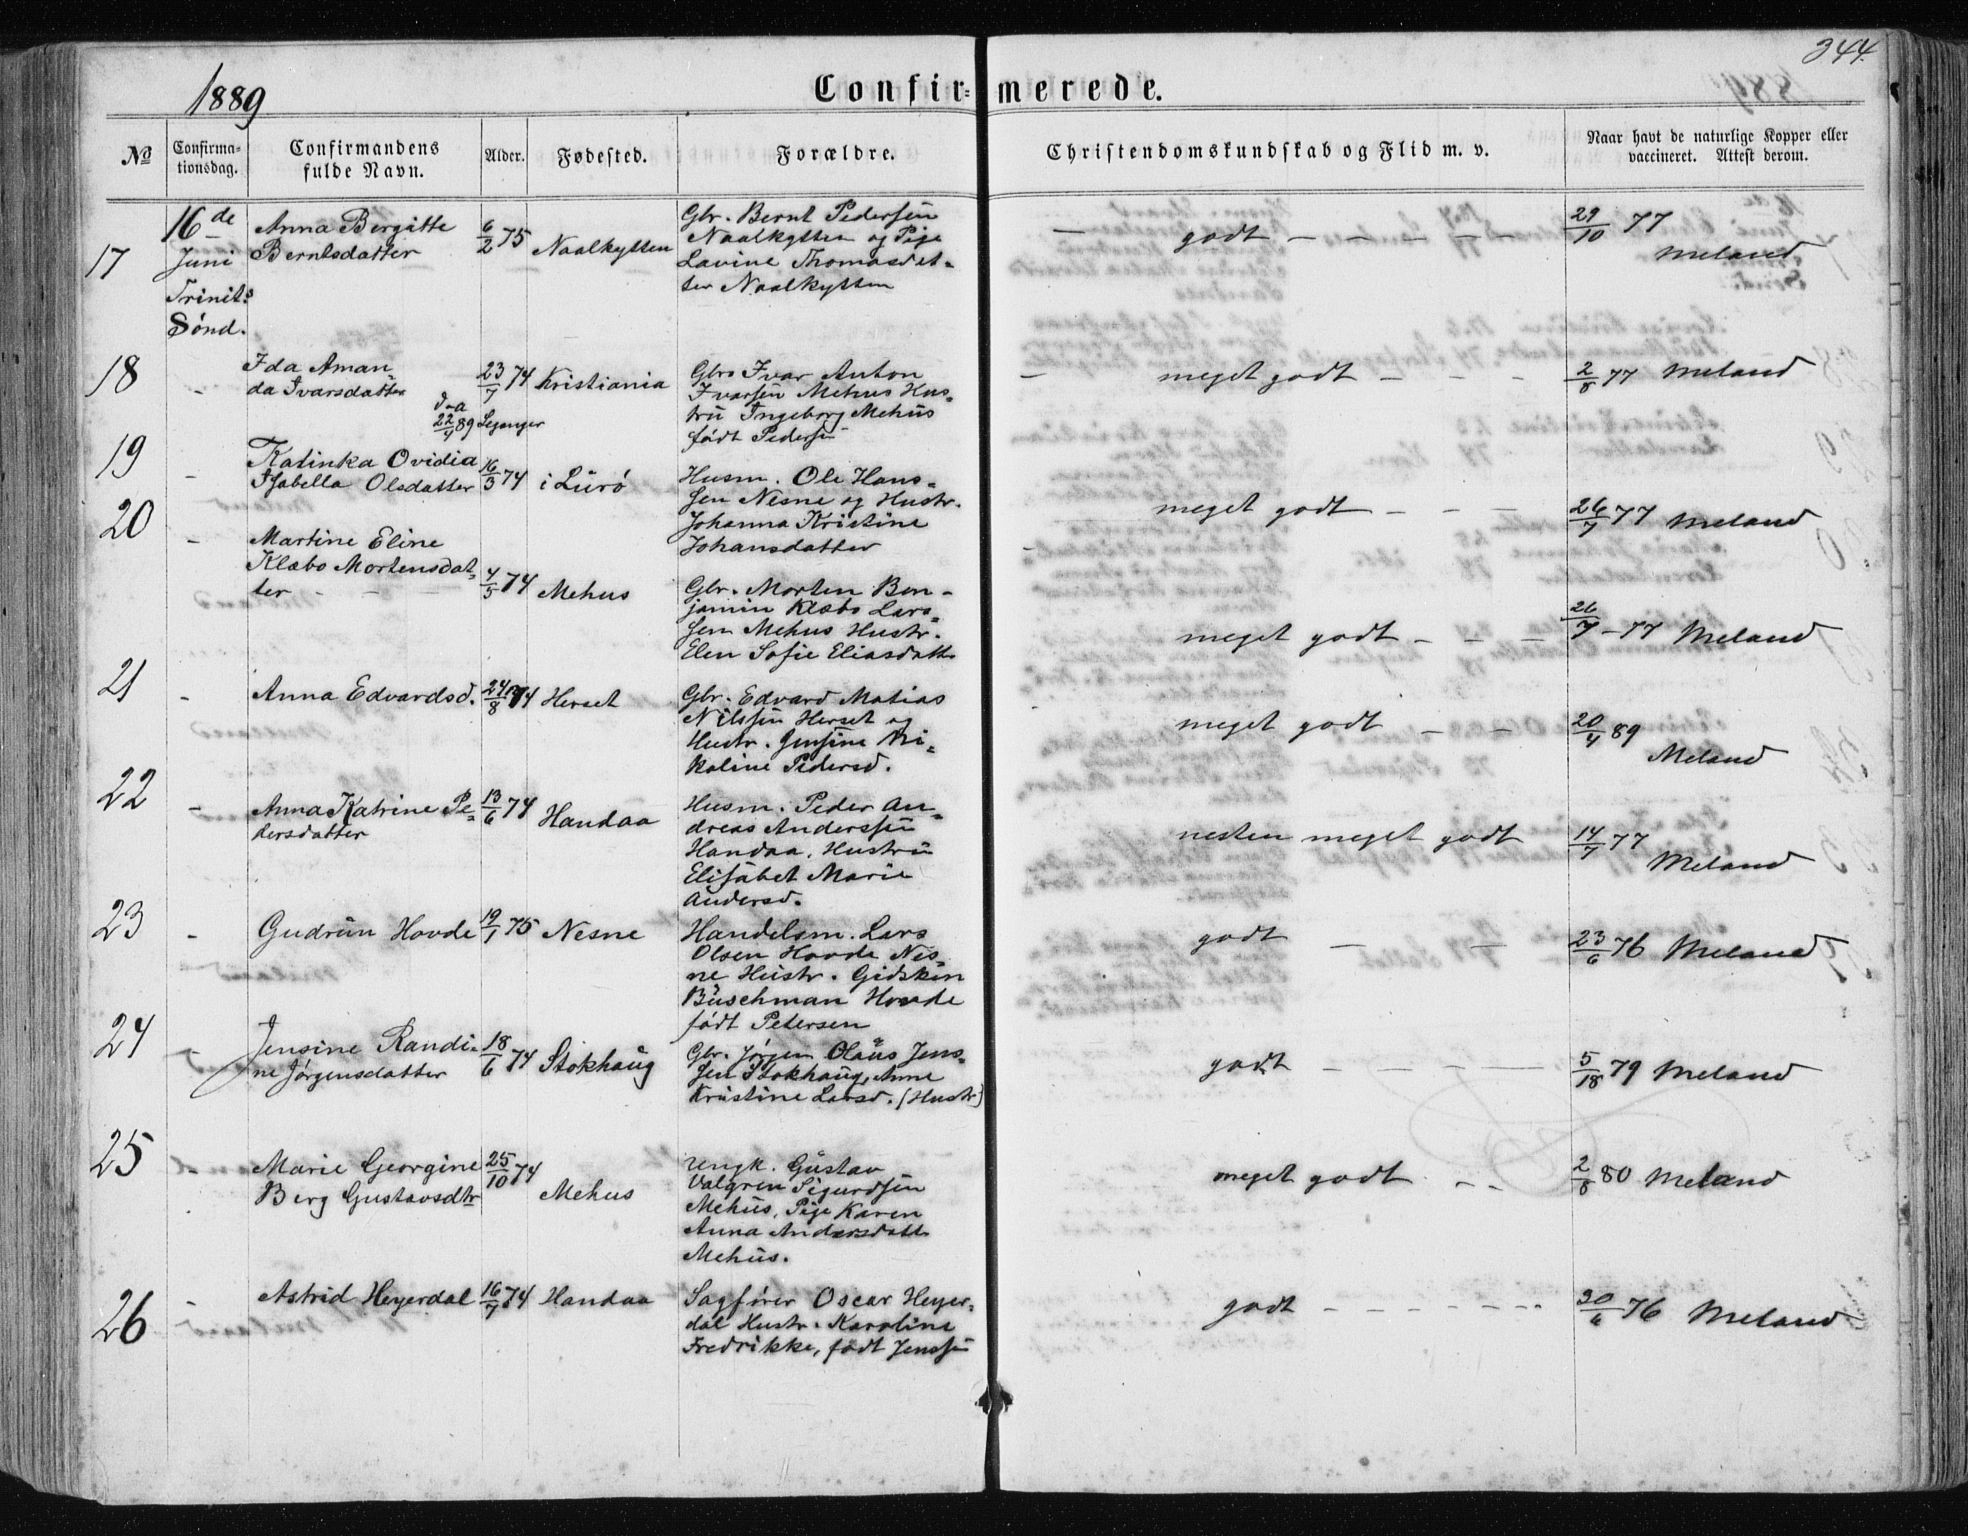 344.
1889
Confir=merede.
No
Confirma-
tionsdag.
Confirmandens
fulde Navn.
Alder.
Fødested.
Forældre.
Christendomskundskab og Flid m. v.
Naar havt de naturlige Kopper eller
vaccineret. Attest derom.
17
16de
Juni
Trinit:s
Sønd.
Anna Bergitte
Berntsdatter
6/2 75
Naalkytten
Gbr. Bernt Pedersen
Naalkytten og Pige
Lavine Thomasdat=
ter Naalkytten
godt - - - - -
29/10 77
Meland
18
-
Ida Aman
da Ivarsdatter
d-a
22/4 89 Leganger
23/7 74
Kristiania
Gbr. Ivar Anton
Ivarsen Mehus Hus=
tru Ingeborg Mehus
født Pedersen
meget godt - - -
2/8 77 Meland
19
-
Katinka Ovidia
Isabella Olsdatter
16/3 74
i Lurø
Husm. Ole Hans=
sen Nesne og Hustr.
Johanna Kristine
Johansdatter
meget godt - - -
26/7 77 Meland
20
-
Martine Eline
Klæbo Mortensdat=
ter - - -
4/5 74
Mehus
Gbr. Morten Ben-
jamin Klæbo Lars=
sen Mehus Hustr.
Elen Sofie Eliasdatt.
meget godt - - -
26/7-77 Meland
21
-
Anna Edvardsd.
24/8 74
Herset
Gbr. Edvard Matias
Nilssen Herset og
Hustr. Jensine Ni=
koline Pedersd.
meget godt - -
20/4 89
Meland
22
-
Anna Katrine Pe=
dersdatter
13/6 74
Handaa
Husm. Peder An=
dreas Anderssen
Handaa, Hustru
Elisabet Marie
Andersd.
nesten meget godt
14/7 77
Meland
23
-
Gudrun Hovde
19/1 75
Nesne
Handelsm. Lars
Olsen Hovde Nes=
ne Hustr. Gidsken
Buschman Hovde
født Petersen
godt - -
23/6 76 Meland
24
-
Jensine Randi=
ne Jørgensdatter
18/6 74
Stokhaug
Gbr. Jørgen Olaus Jens=
sen Stokhaug, Anne
Kristine Larsd. (Hustr)
godt - - - - -
5/18 79 Meland
25
-
Marie Georgine
Berg Gustavsdtr
25/10 74
Mehus
Ungk. Gustav
Valgren Sigurdsen
Mehus, Pige Karen
Anna Andersdatt.
Mehus.
meget godt . - -
2/8 80 Meland
26
-
Astrid Heyerdal
16/7 74
Handaa
Sagfører Oscar Heyer=
dal Hustr. Karoline
Fredrikke, født Jenssen
godt - - - - - -
30/6 76 Meland